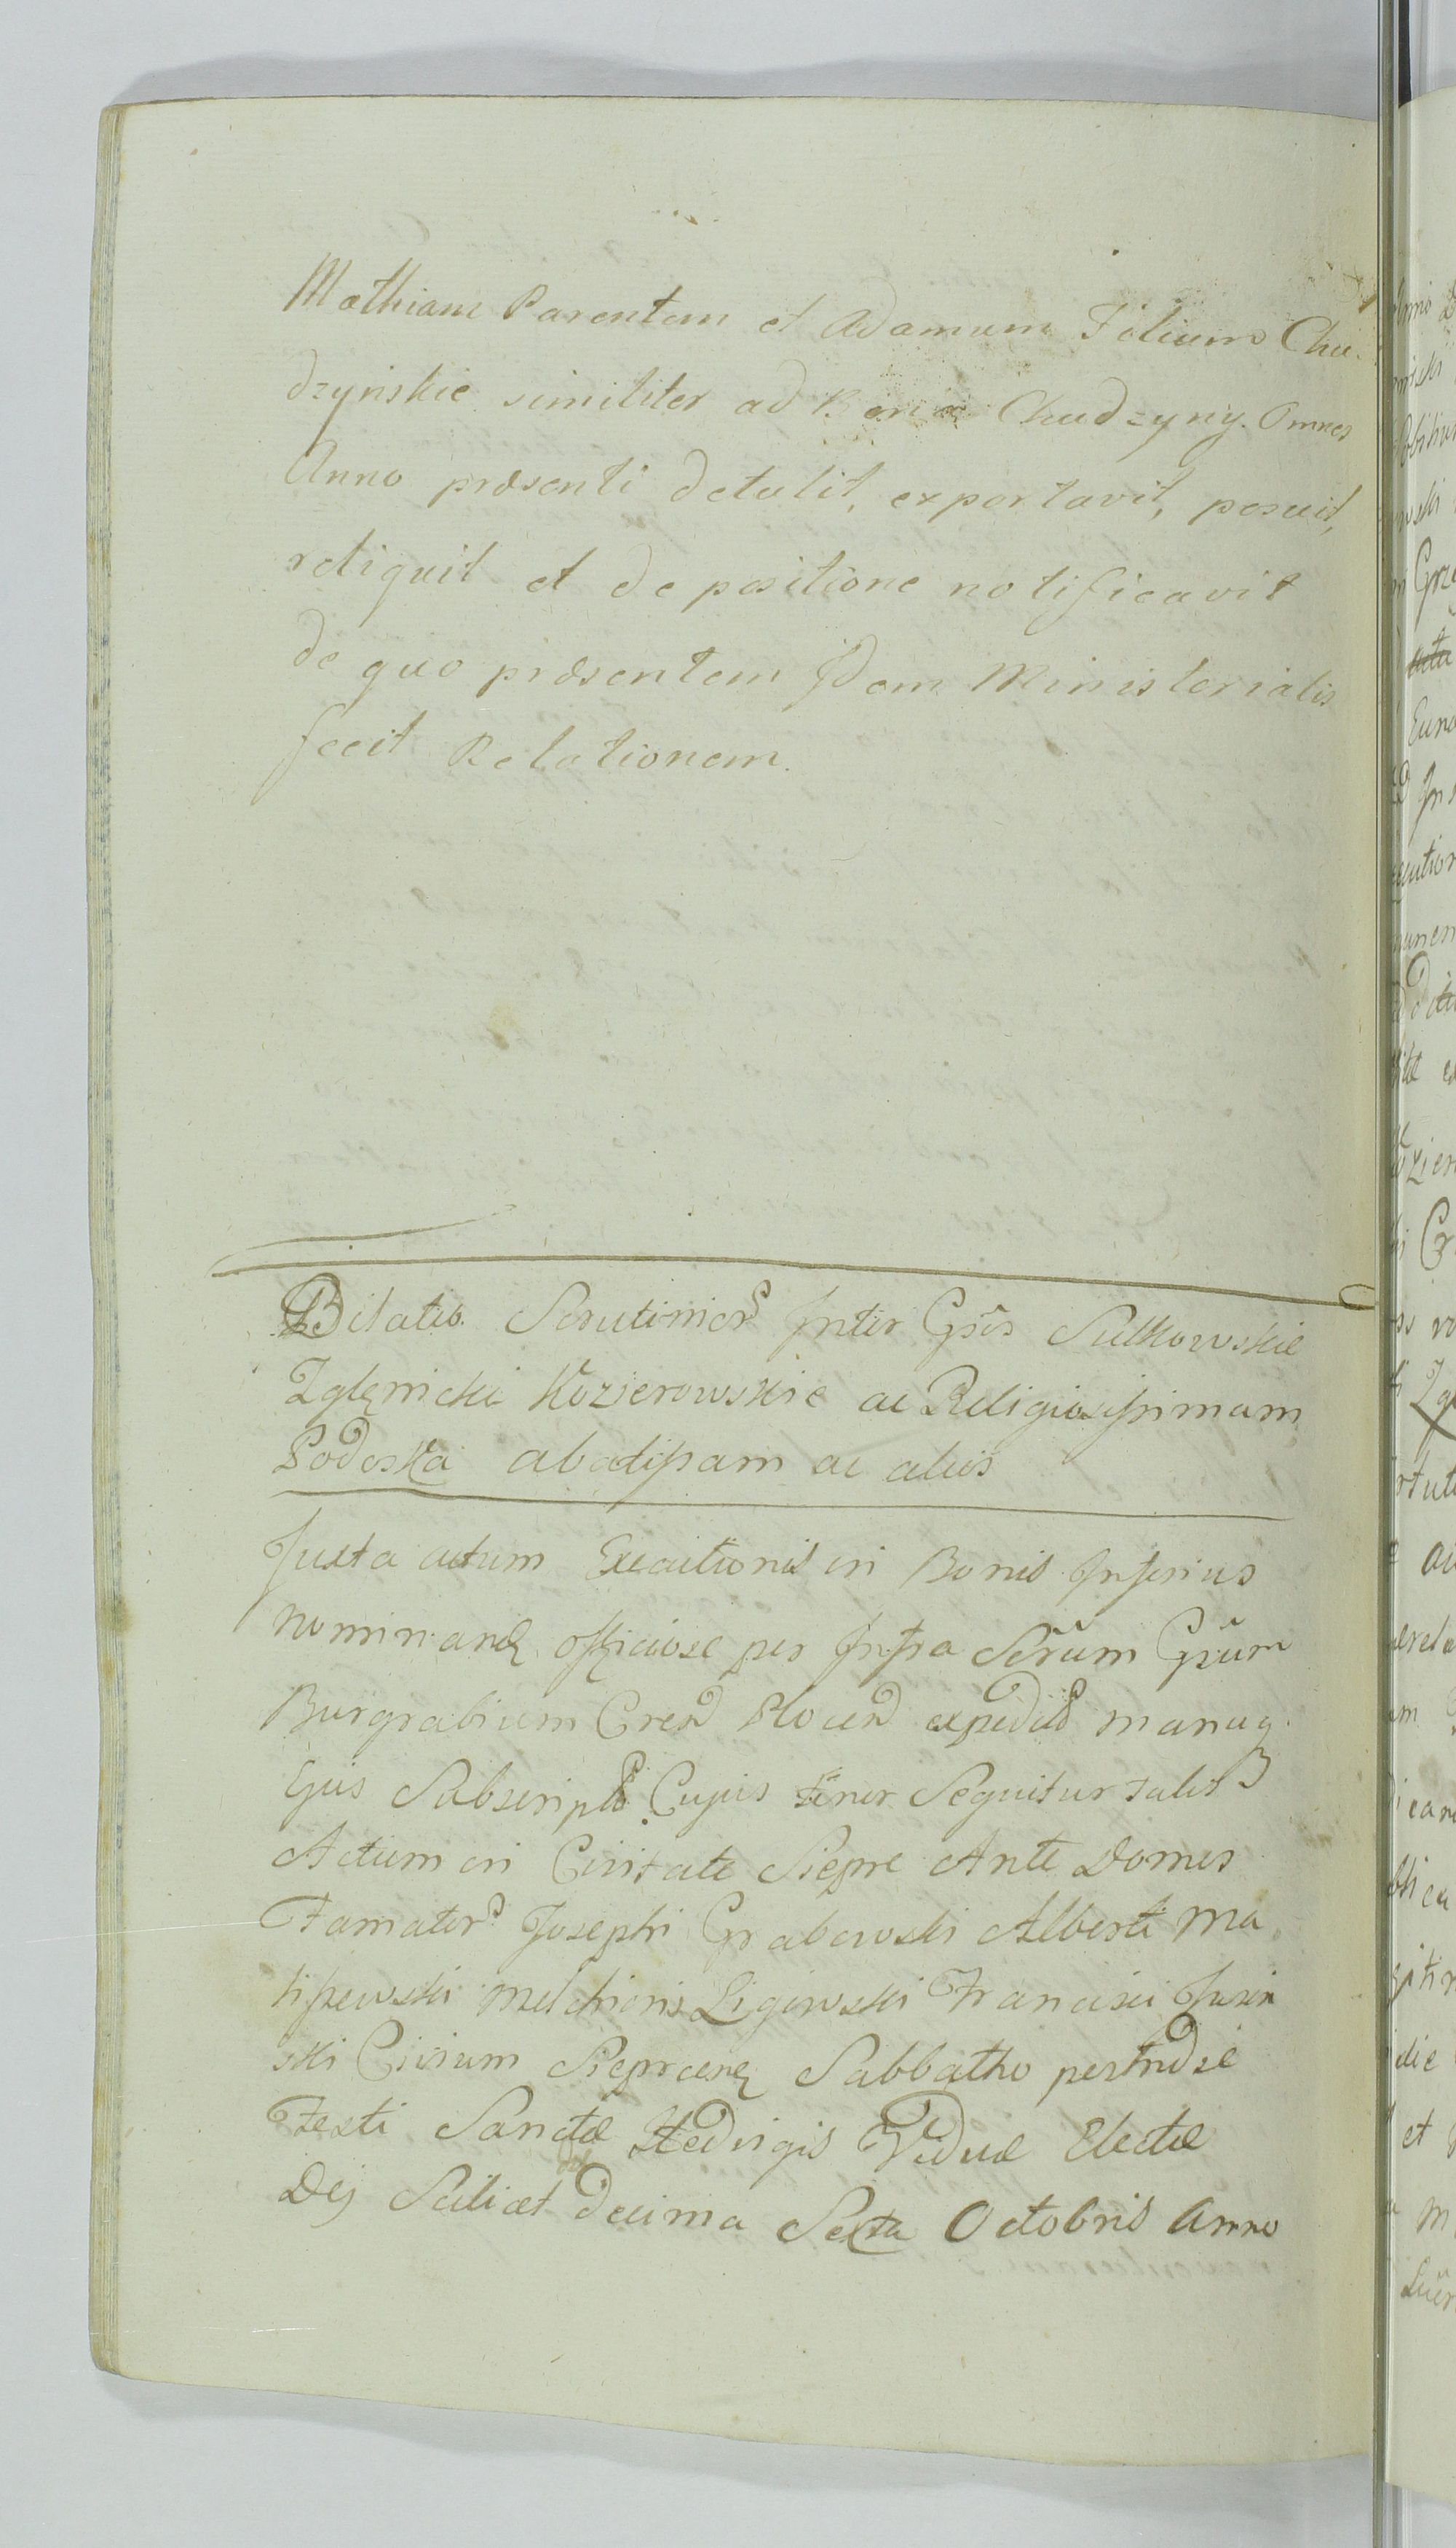 Mathiam Parentem et Adamum Filium Chu-
dzyńskie similiter ad Bona Chudzyny. Omnes
Anno præsenti detulit, exportavit, posuit,
reliquit et de positione notificavit
de quo præsentem Idem Ministerialis
fecit Relationem.
Dilatio Scrutinior Inter Gsos Sulkowskie
Zglęnicki Kozierowskie ac Religiosissimam
Podoska abatissam ac alios
Juxta actum Executionis in Bonis Inferius
nominand officiose per Infra Scrum Gsum
Burgrabium Cren Plocen expedit manuq
Ejus Subscript Cujus tenor Sequitur talis
Actum in Civitate Sieprc Ante Domus
Famator Josephi Grabowski Alberti Ma
liszewski Melchioris Ligowski Francisci Jusin
ski Civium Sieprcens Sabbatho postridie
Festi Sanctæ Hedvigis Viduæ Electæ
Dej Scilicet Decima Sexta Octobris Anno